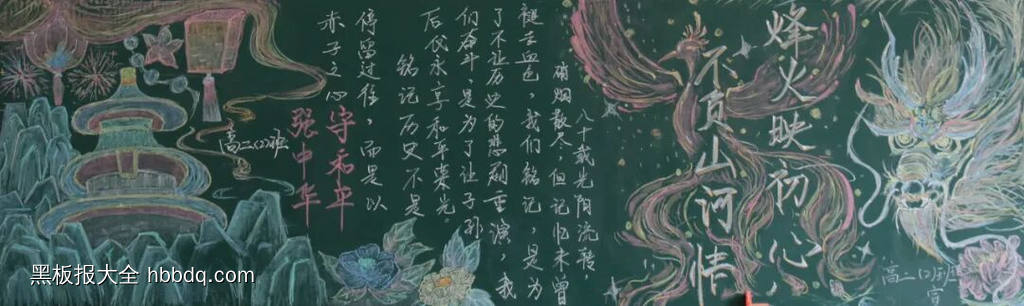 烽火映初心
不负山河情
八十载光阴流转
硝烟散尽,但记忆未曾
褪去血色,我们铭记,是为
了不让历史的悲剧重演,我
们奋斗,是为了让子孙
后代永享和平荣光
铭记历史不是
停留过往,而是以
赤子之心
守和平
强中华
高二(2)班
高二(2)班
黑板报大全 hbbdq.com